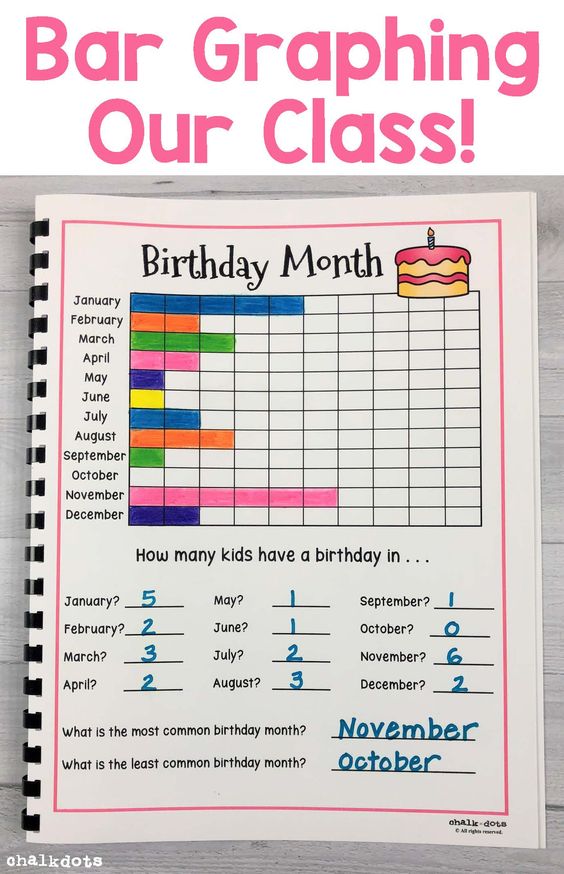 Bar Graphing
Our Class!
Birthday Month
January
February
March
April
May
June
July
August
September
October
November
December
How many kids have a birthday in . . .
January? 5 May? 1 September? 1
February? 2 June? 1 October? 0
March? 3 July? 2 November? 6
April? 2 August? 3 December? 2
What is the most common birthday month? November
What is the least common birthday month? October
chalk-dots
© All rights reserved.
chalkdots